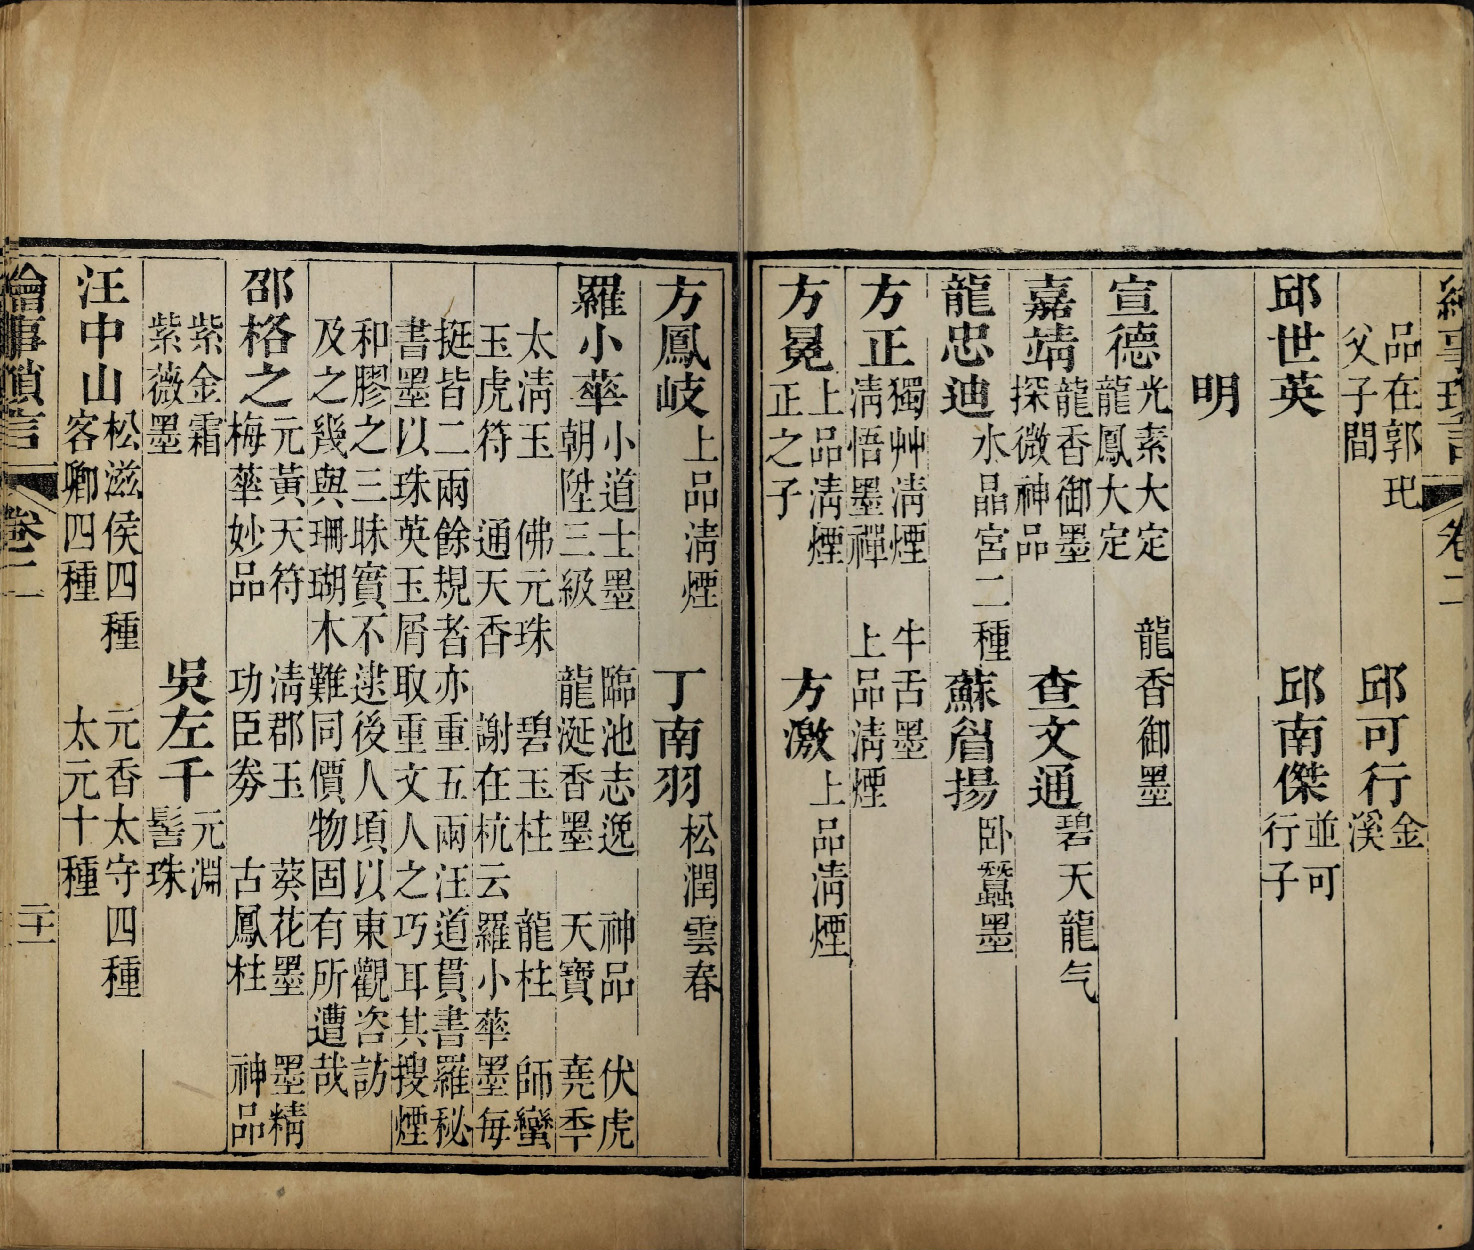 繪事瑣言 卷二
品在郭玘
父子間
邱可行
金
溪
邱世英
邱南傑
並可
行子
明
宣德
光素大定 龍香御墨
龍鳳大定
嘉靖
龍香御墨
探微神品
查文通
碧天龍气
龍忠迪
水晶宮二種
蘇眉揚
卧蠶墨
方正
獨艸淸煙 牛舌墨
淸悟墨禪 上品淸煙
方冕
上品淸煙
正之子
方激
上品淸煙
方鳳岐
上品淸煙
丁南羽
松潤雲春
羅小華
小道士墨 臨池志逸 神品 伏虎
朝陞三級 龍涎香墨 天寶 堯季
太淸玉 佛元珠 碧玉柱 龍柱 師蠻
玉虎符 通天香 謝在杭云羅小華墨每
挺皆二兩餘規者亦重五兩汪道貫書羅秘
書墨以珠英玉屑取重文人之巧耳其搜煙
和膠之三昧實不逮後人頃以東觀咨訪
及之幾與珊瑚木難同價物固有所遭哉
邵格之
元黃天符 淸郡玉 葵花墨 墨精
梅華妙品 功臣劵 古鳳柱 神品
紫金霜
紫薇墨
吳左千
元淵
髻珠
汪中山
松滋侯四種 元香太守四種
客卿四種 太元十種
繪事瑣言 卷二 二十一